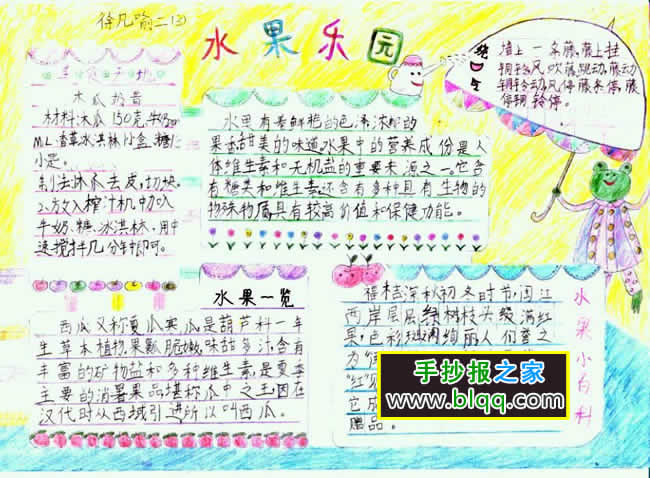 徐凡喻二(3)
水果乐园
美食天地
木瓜奶昔
材料:木瓜150克,牛奶
ML,香草冰淇林小盒,糖
小定。
去皮,切块。
放入榨汁机,切入
牛奶、糖、冰淇林,用中
速搅拌几分钟即可。
水里有着鲜艳的色泽,浓郁的
果香,甜美的味道,水果中的营养成份是人
体维生素和无机盐的重要来源之一,它含
有糖类和维生素,还含有多种具有生物的
物殊物质具有较高价值和保健功能。
绕口令
墙上一条藤,藤上挂
铜铃,风吹藤跳动,藤动
铜铃动,风停藤条停,藤
停铜铃停。
水果一览
西瓜又称夏瓜寒瓜是葫芦科一年
生草本植物,果瓤脆嫩,味甜多汁,含有
丰富的矿物盐和多种维生素,是夏季
主要的消暑果品,堪称瓜中之王,因在
汉代时从西域引进所以叫西瓜。
水果小百科
福桔深秋初冬时节,闽江
两岸层层绿树枝头缀满红
果,色彩斑斓绚丽人们喜之
为
它成
赠品。
手抄报之家
www.blqq.com